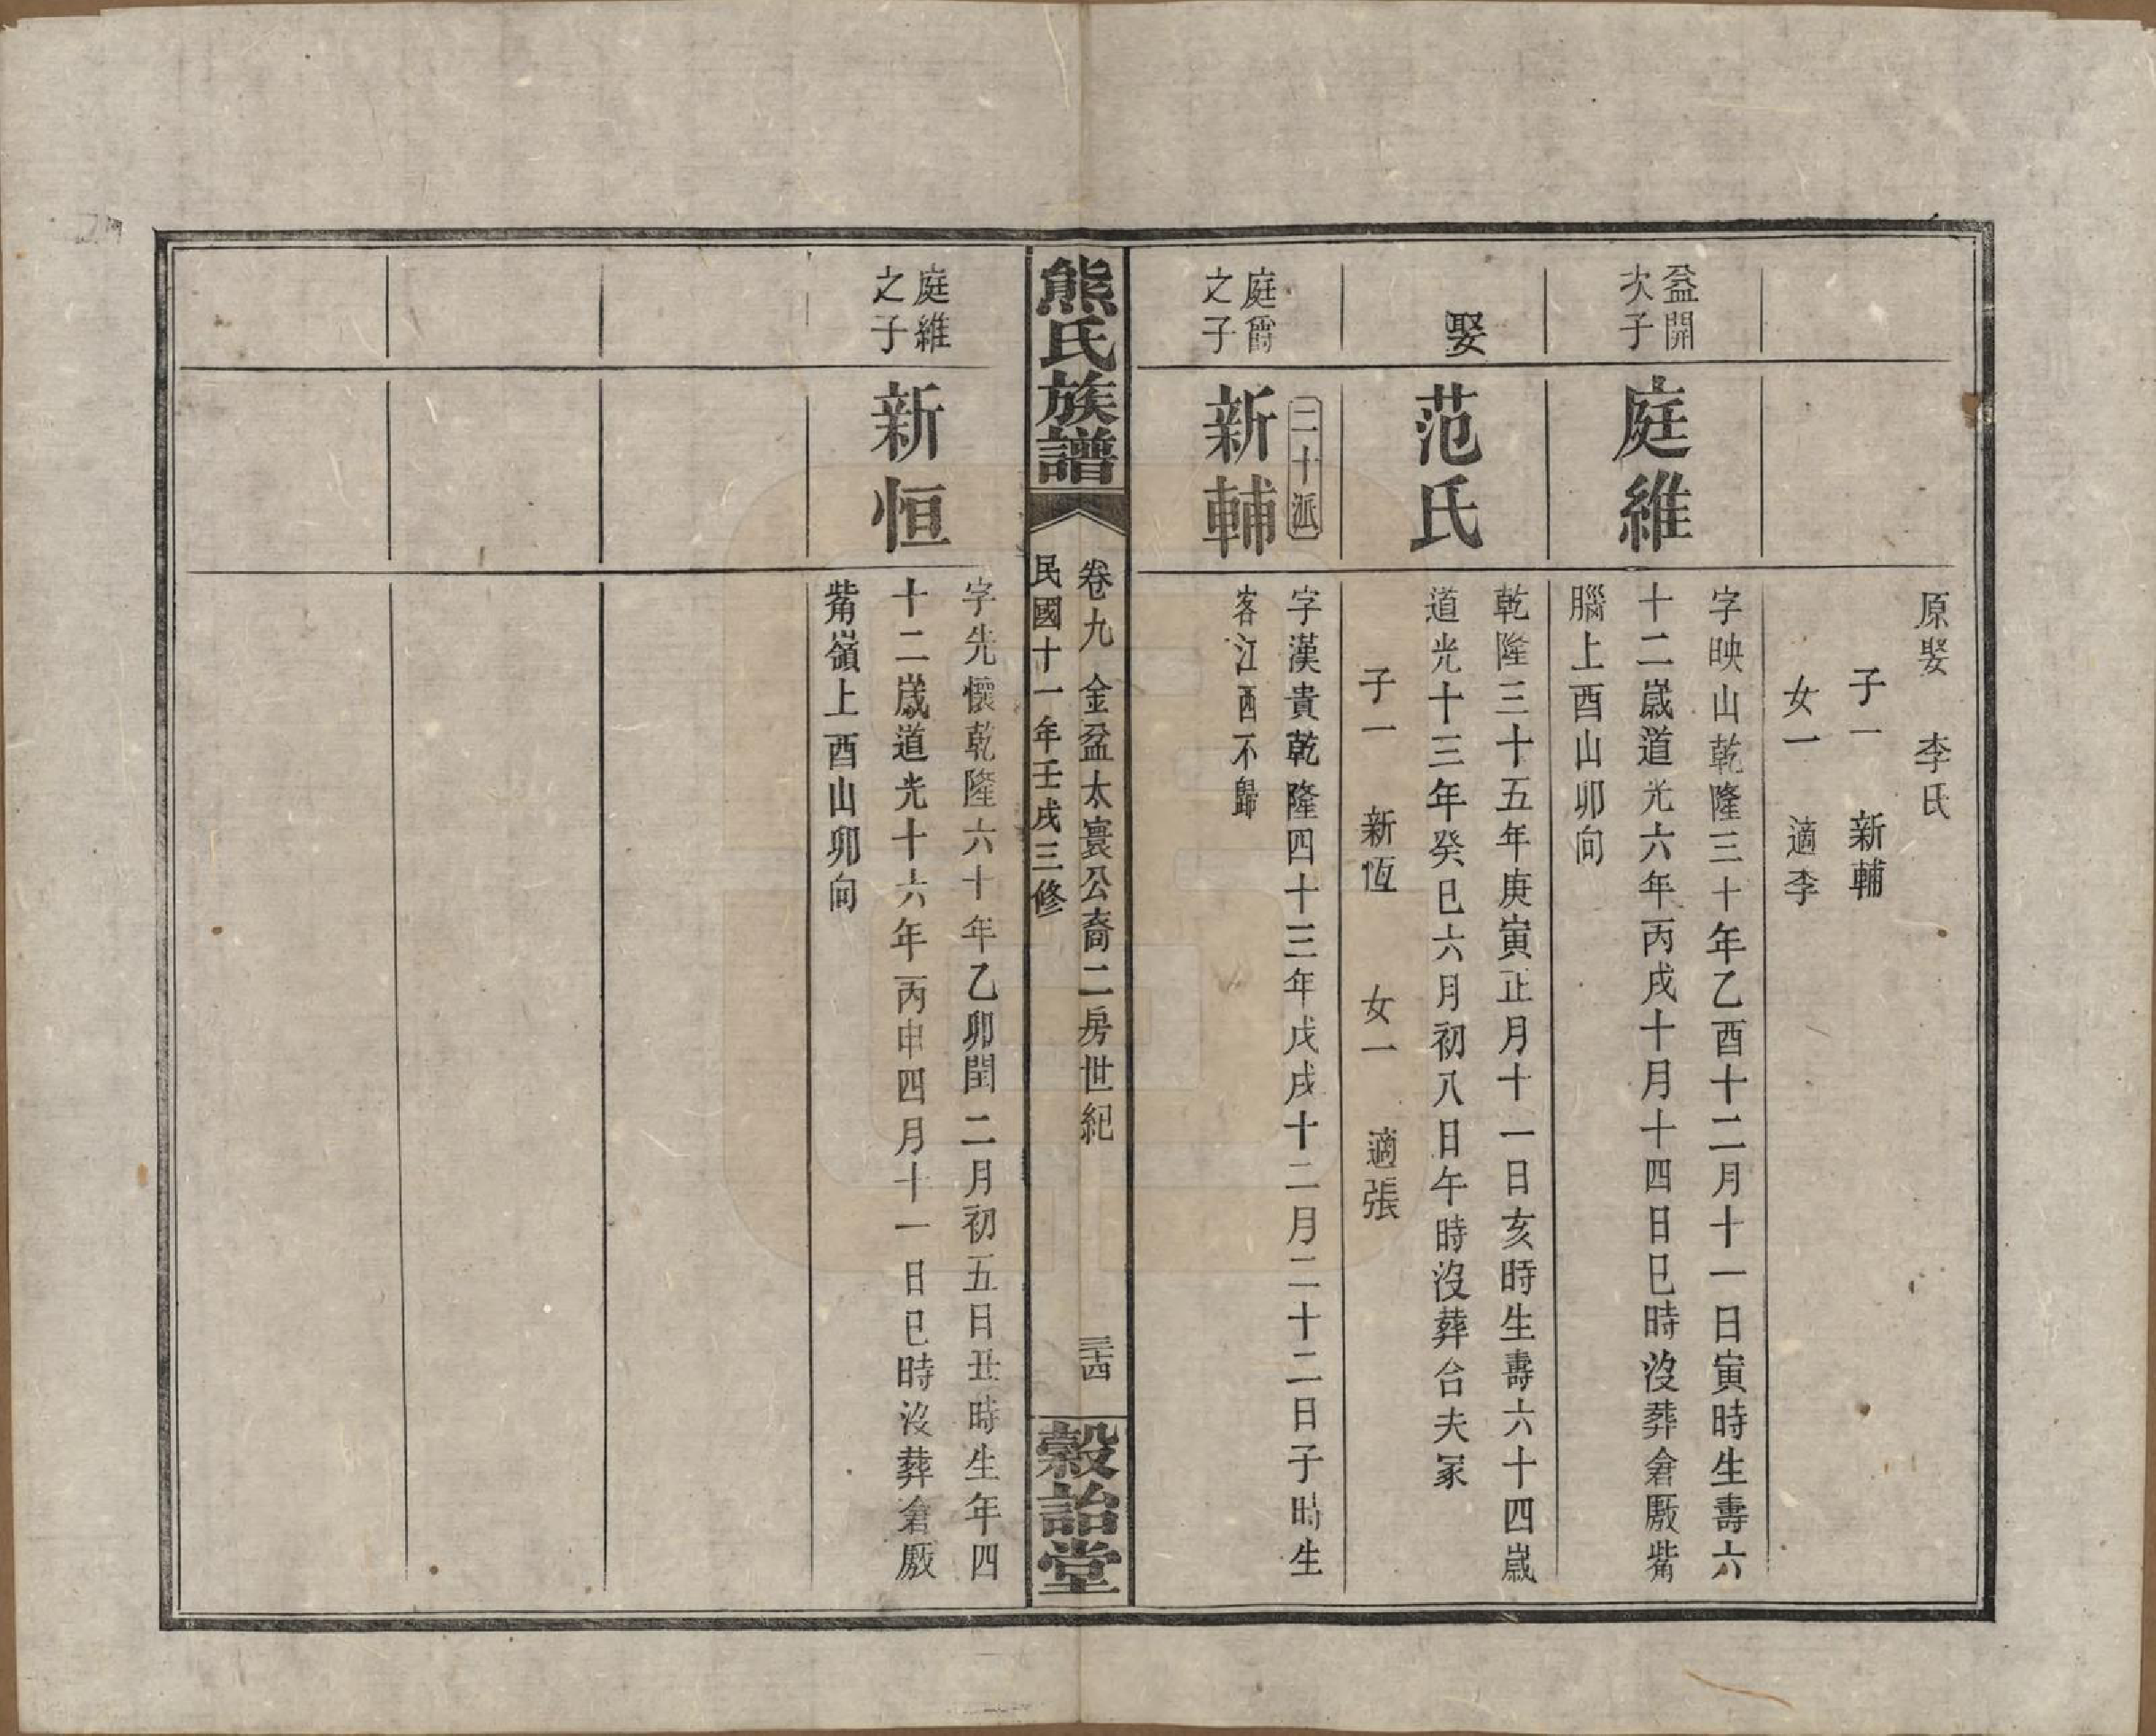 原娶　李氏
子一　新輔
女一　適李
益開
次子
庭維
字映山乾隆三十年乙酉十二月十一日寅時生壽六
十二歲道光六年丙戌十月十四日巳時沒葬倉厫觜
腦上酉山卯向
娶
范氏
乾隆三十五年庚寅正月十一日亥時生壽六十四歲
道光十三年癸巳六月初八日午時沒葬合夫冢
子一　新恆　女一　適張
二十派
庭爵
之子
新輔
字漢貴乾隆四十三年戊戌十二月二十二日子時生
客江西不歸
熊氏族譜
卷九　金盆太寰公裔二房世紀
三十四
民國十一年壬戌三修
穀詒堂
庭維
之子
新恒
字先懷乾隆六十年乙卯閏二月初五日丑時生年四
十二歲道光十六年丙申四月十一日巳時沒葬倉厫
觜嶺上酉山卯向